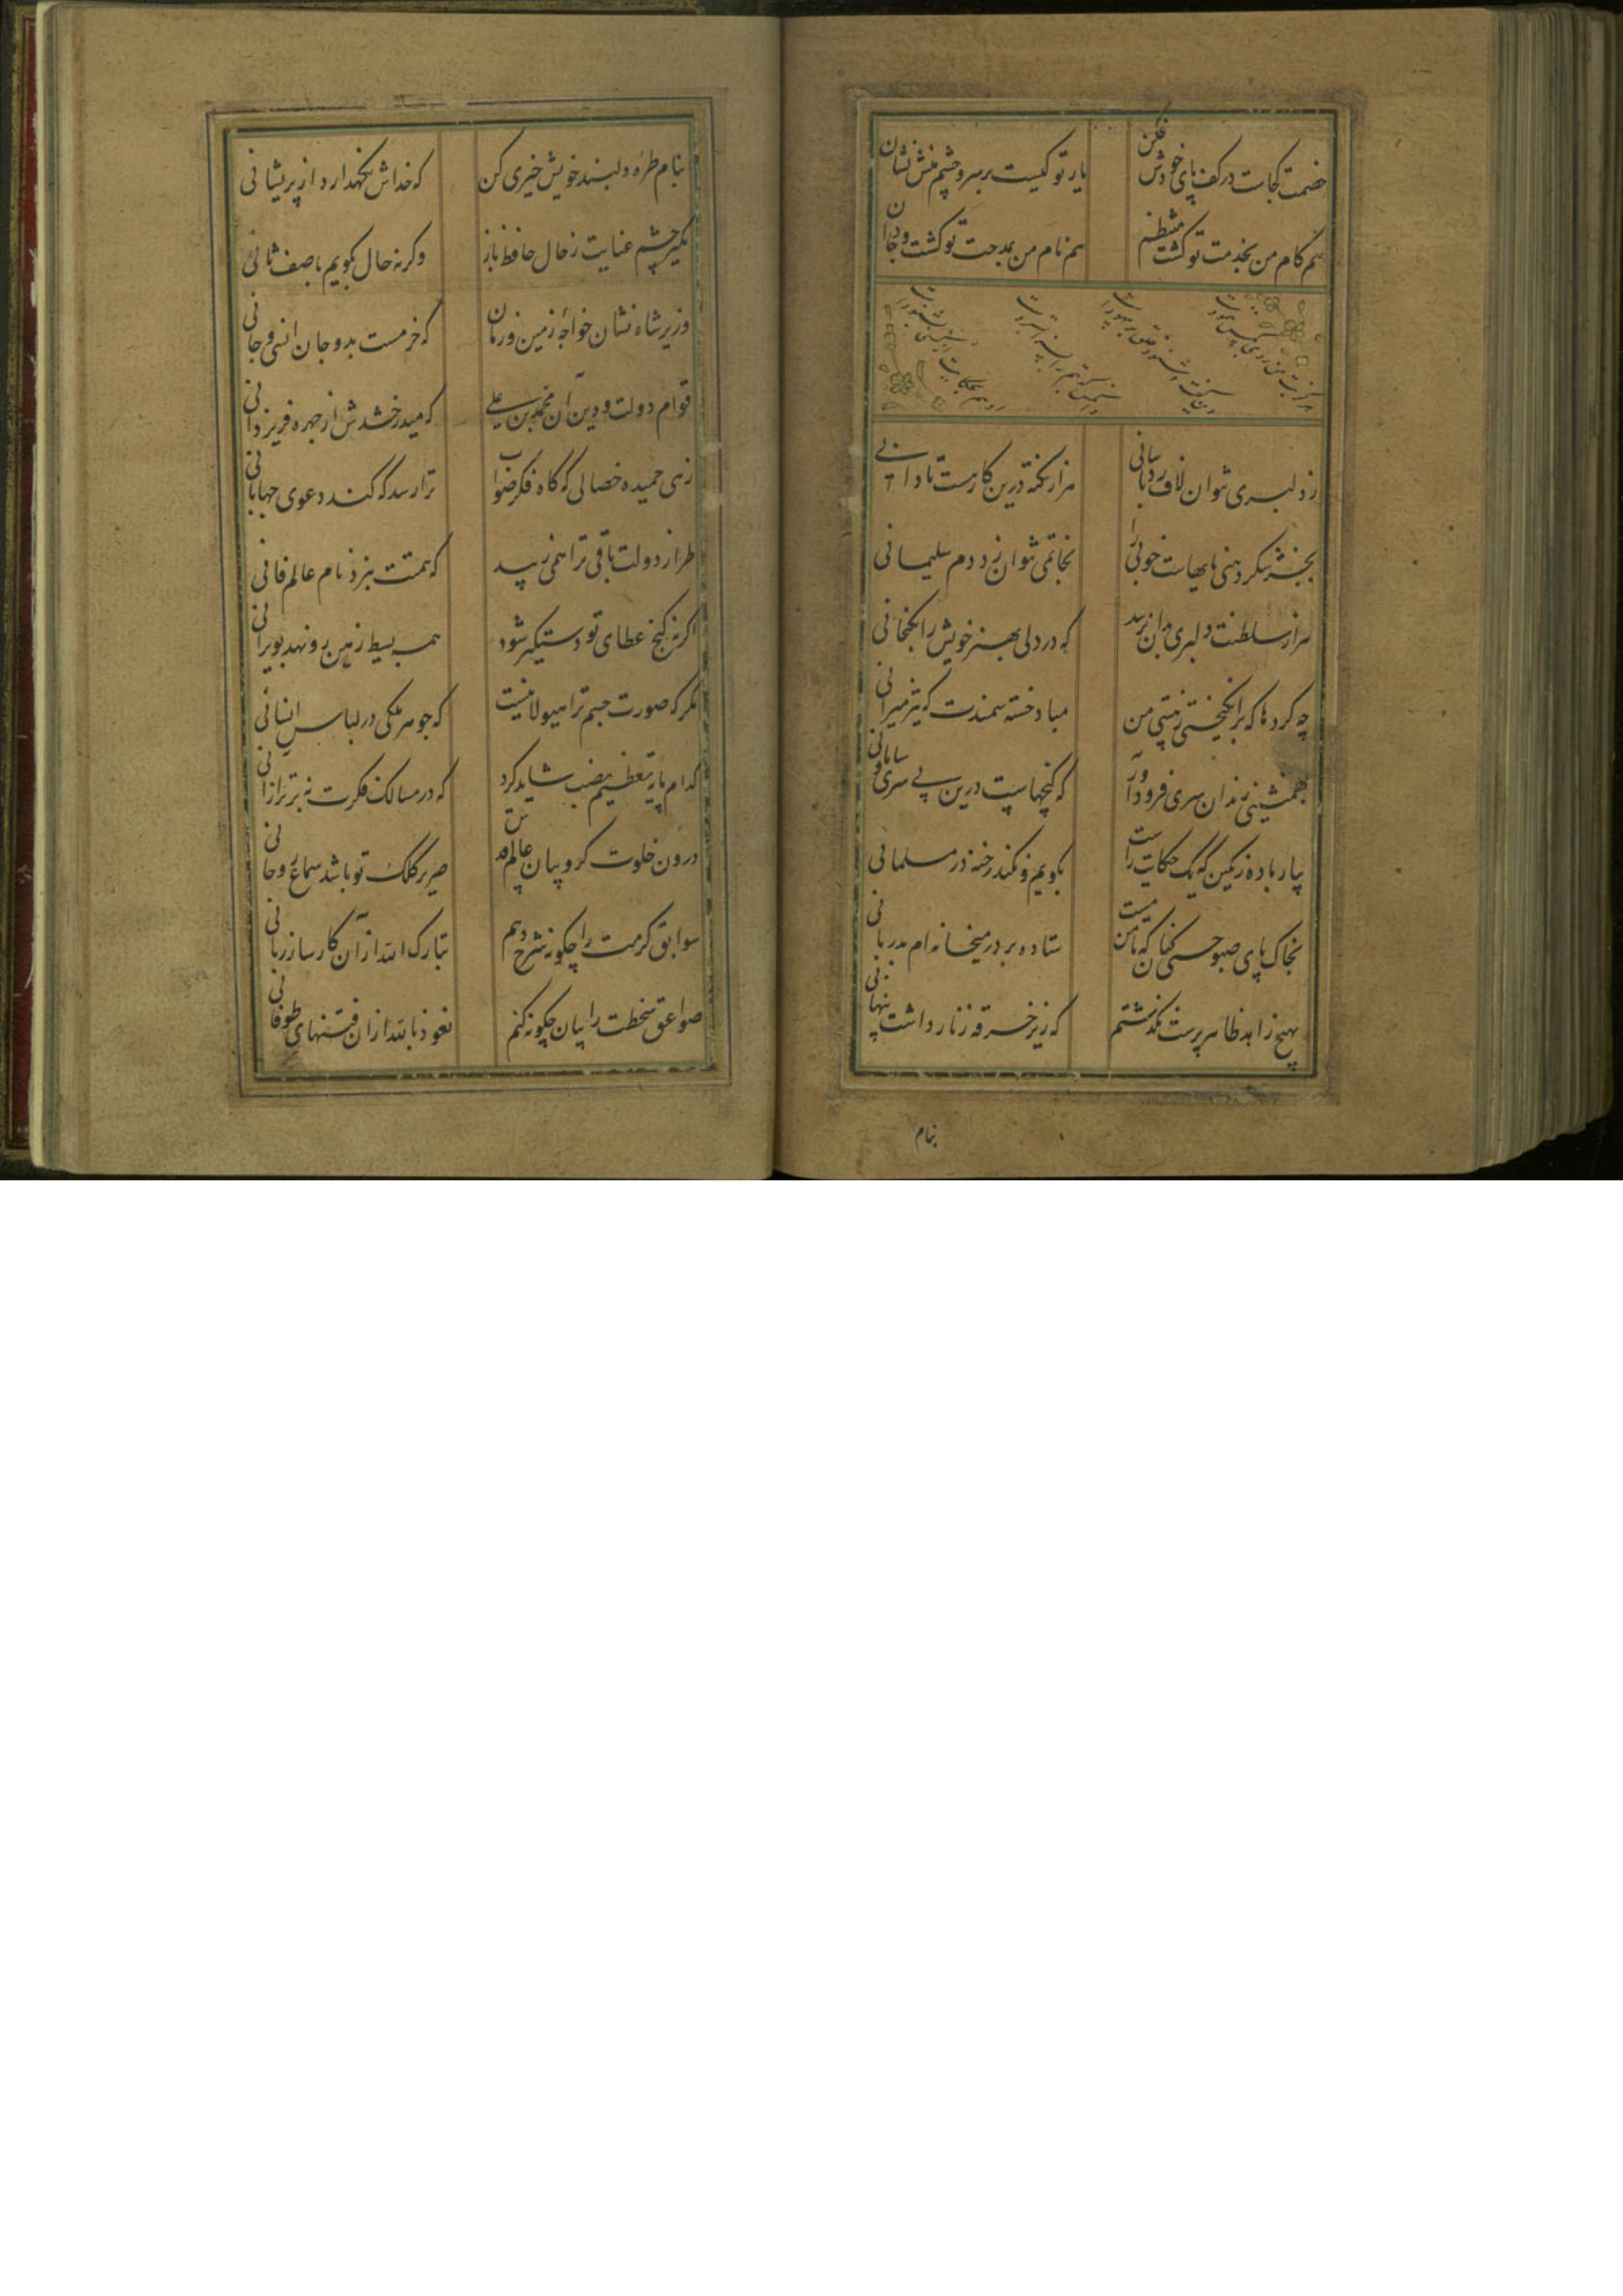 خصمت کجاست در کف پای خودش فکن
یار تو کیست بر سر و چشم منش نشان
هم کام من بخدمت تو کشت منتظم
هم نام من بمدحت تو کشت جاودان
ز دلبری نتوان لاف زد بآسانی
هزار نکته درین کار هست تا دانی
بجز شکر دهنی مایهاست خوبی را
بخاتمی نتوان زد دم سلیمانی
هزار سلطنت دلبری بدان نرسد
که در دلی بهنر خویش را بکنجانی
چه کردها که برانکیختی ز هستی من
مباد خسته سمندت که تیز میرانی
بهمنشینی رندان سری فرود آور
که کنجهاست درین بی سری و سامانی
بیار باده رنکین که یک حکایت راست
بکویم و نکند رخنه در مسلمانی
بخاک پای صبوحی کنان که تا من مست
ستاده بر در میخانه ام بدربانی
بهیچ زاهد ظاهر پرست نکذشتم
که زیر خرقه زنار داشت پنهانی
بنام
بنام طره دلبند خویش خیری کن
که خداش نکهدارد از پریشانی
مکیر چشم عنایت ز حال حافظ باز
وکرنه حال بکویم بآصف ثانی
وزیر شاه نشان خواجه زمین و زمان
که خرمست بدو جان انسی و جانی
قوام دولت و دین آن محمد بن علی
که میدرخشدش از چهره فر یزدانی
زهی حمیده خصالی که کاه فکر صواب
ترا رسد که کند دعوی جهانبانی
طراز دولت باقی ترا همی زیبد
که همتت نبرد نام عالم فانی
اکر نه کنج عطای تو دستکیر شود
همه بسیط زمین رو نهد بویرانی
مکر که صورت جسم ترا هیولا نیست
که جوهر ملکی در لباس انسانی
کدام پایه تعظیم نصب شاید کرد
که در مسالک فکرت نه برتر از آنی
درون خلوت کروبیان عالم قدس
صریر کلک تو باشد سماع روحانی
سوابق کرمت را چکونه شرح دهم
تبارک الله از آن کارساز ربانی
صواعق سخطت را بیان چکونه کنم
نعوذ بالله از آن فتنهای طوفانی